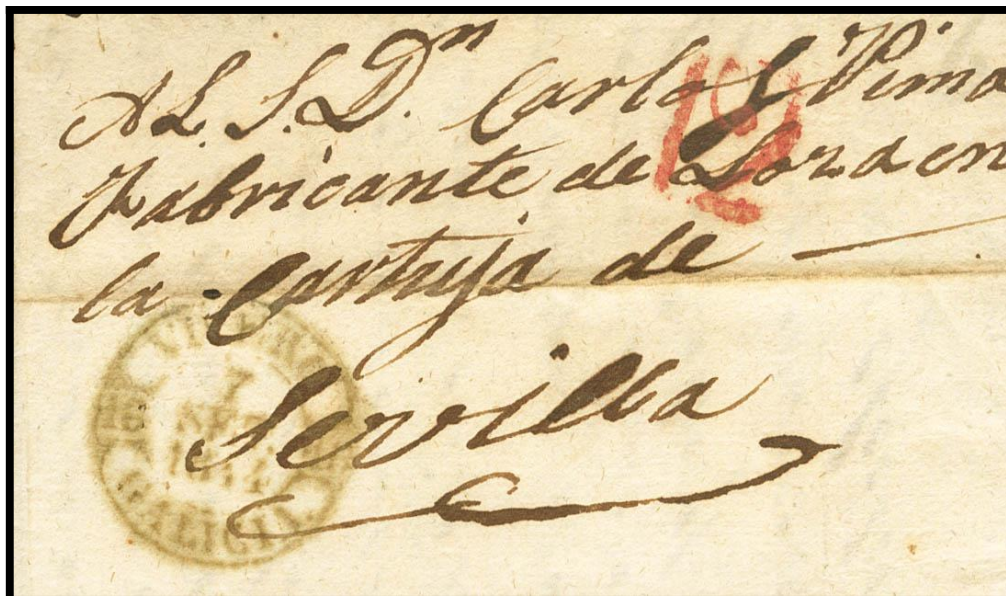 Al S. Dn Carlos
Fabricante de Loza en
la Cartuja de
Sevilla
GALICIA